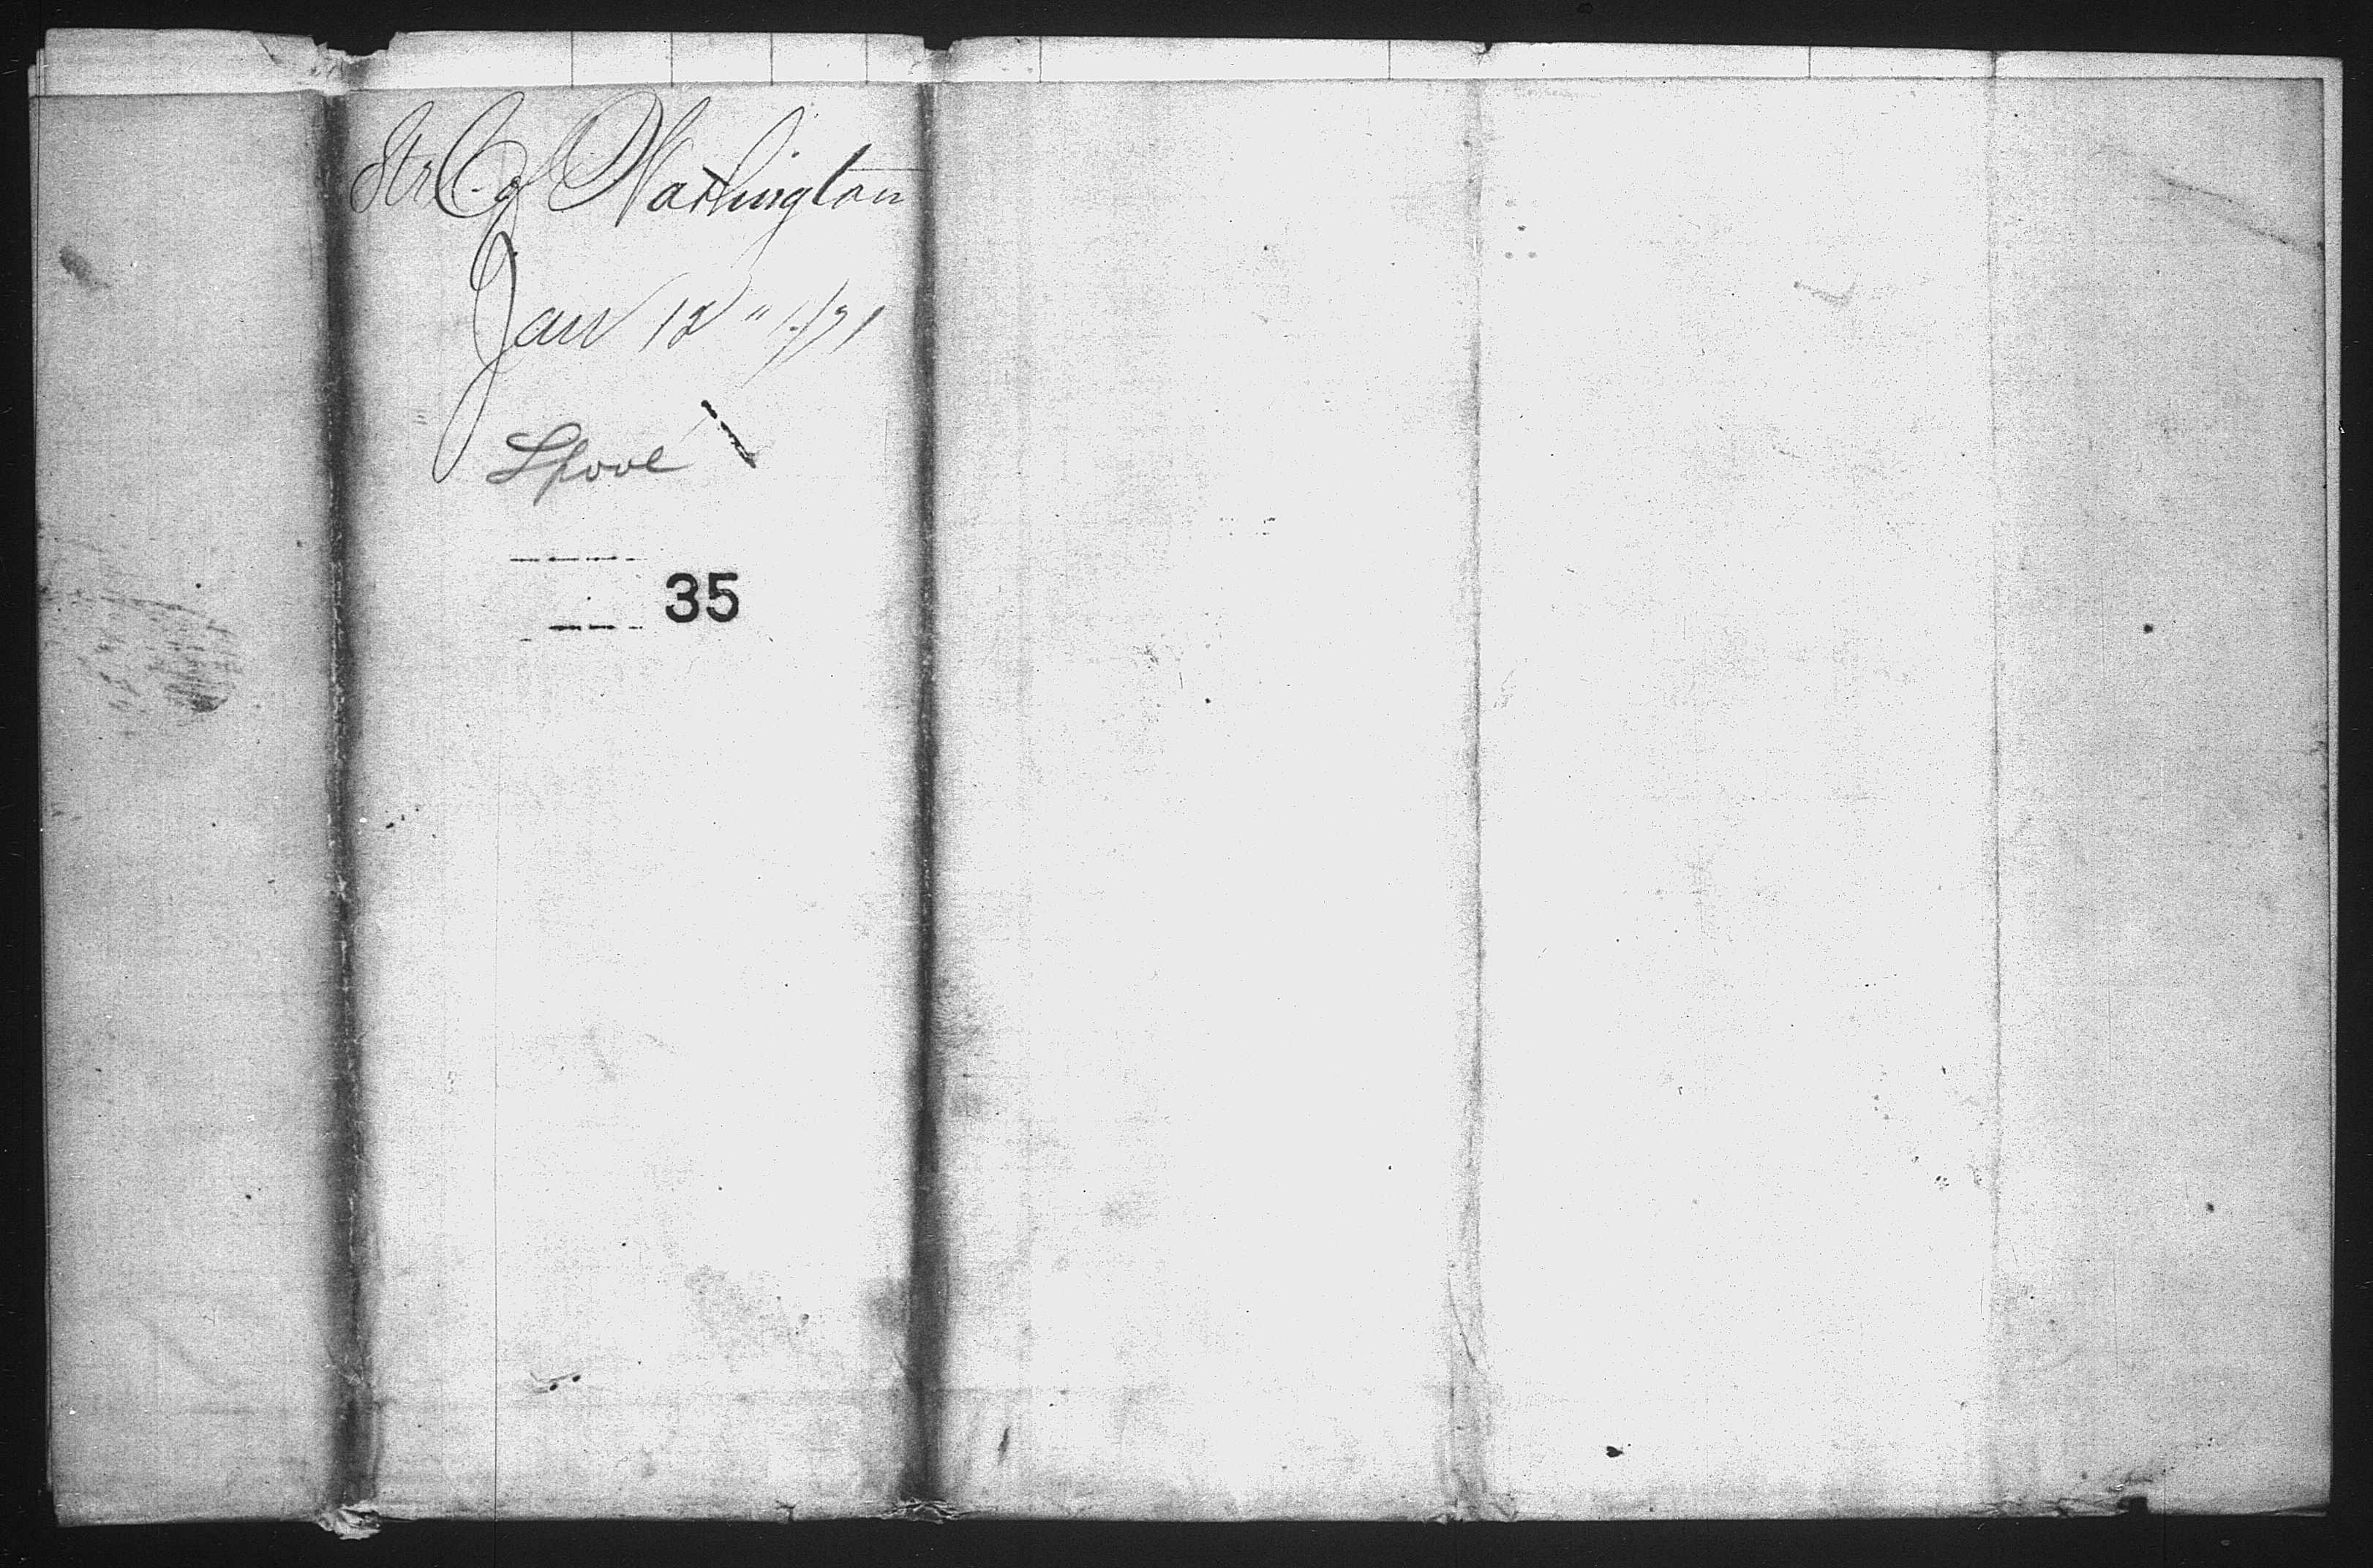 Str C. of Washington
Jan 12" 1/71
Lpool
35